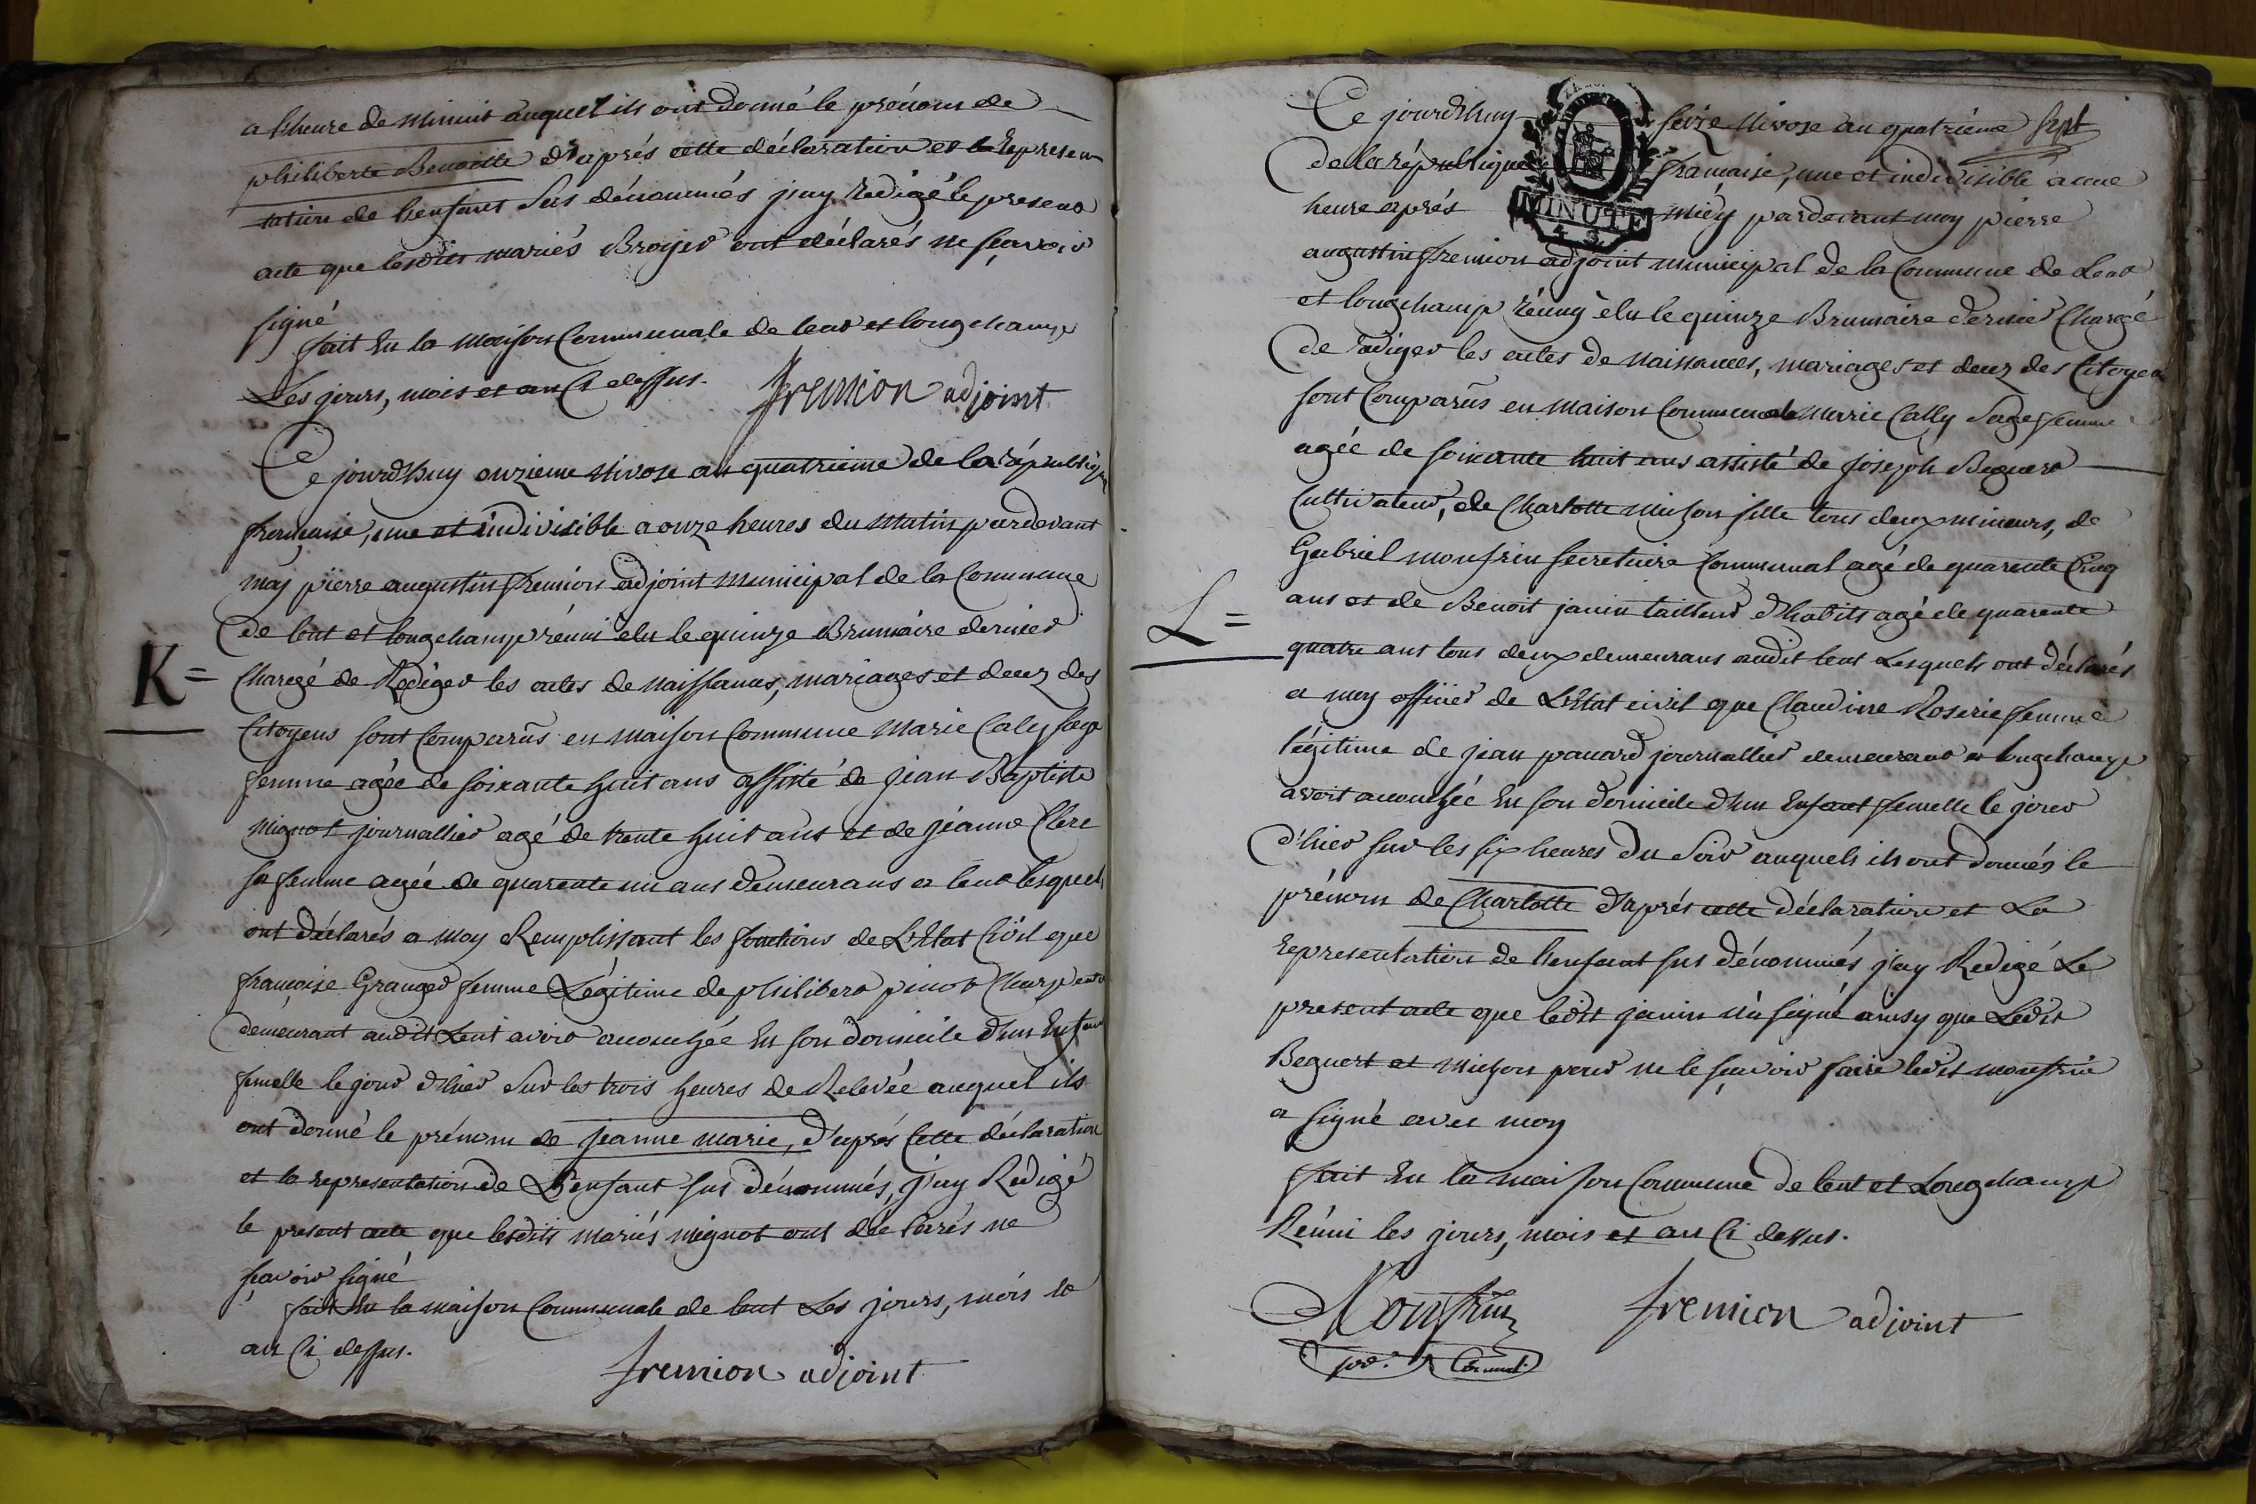 a lheure de Minuit auquel ils ont donné le prénom de
philiberte Benoitte d'aprés cette déclaration et la Represen
tation de l'enfant sus dénommés j'ay Redigé le present
acte que lesdits mariés Broyer ont déclarés ne sçavoir
signé
fait En la Maison Communale de lent et longchamp
Les jours, mois et an Ci dessus. fremion adjoint
Ce jourd'huy onzieme Nivose an quatrieme de la république
françaisse, une et indivisible a onze heures du Matin pardevant
moy pierre augustin fremion adjoint Municipal de la Commune
de lent et longchamp réuni elu le quinze Brumaire dernier
K = Chargé de Rediger les actes de naissances, mariages et decez des
Citoyens sont Comparüs en Maison Commune Marie Caly sage
femme agée de soixante huit ans assisté de jean Baptiste
Mignot journallier agé de trente huit ans et de jéanne Clerc
sa femme agée de quarente un ans demeurans a lent lesquels
ont déclarés a moy Remplissant les fonctions de L'Etat Civil que
françoise Granger femme Légitime de philibert pinot Charpent
demeurant audit Lent avoir accouchée En son domicile d'un Enfant
femelle le jour d'hier Sur les trois heures de Relevée auquel ils
ont donné le prénom de jeanne marie, d'aprés Cette déclaration
et la representation de L'enfant sus dénommés, j'ay Rédigé
le present acte que lesdits mariés mignot ont déclarés ne
sçavoir signé
fait En la maison Communale de lent Les jours, mois et
an Ci dessus.
fremion adjoint
Ce jourd'huy seize Nivose an quatriéme
de la république francaise, une et indivisible a une
heure aprés Midy pardevant moy pierre
MINUTE
augustin fremion adjoint municipal de la Commune de Lent
et longchamp réuny èlu le quinze Brumaire dernier Chargé
de rediger les actes de naissances, mariages et decez des Citoyen
sont Comparüs en Maison Communale Marie Cally Sage femme
agée de soixante huit ans assisté de joseph Beguert
Cultivateur, de Charlotte Mizon fille tous deux mineurs, de
Gabriel monfrin secretaire Communal agé de quarente Cinq
L = ans et de Benoit janin tailleur d'habits agé de quarente
quatre ans tous deux demeurans audit lent Lesquels ont déclarés
a moy officier de L'Etat civil que Claudine Roserie femme
légitime de jean panard journallier demeurant a longchamp
avoit accouchée En son domicile d'un Enfant femelle le jour
d'hier sur les six heures du Soir auquels ils ont donnés le
prénom de Charlotte d'aprés cette déclaration et La
representation de l'enfant sus dénommés j'ay Redigé Le
present acte que ledit janin n'a signé ainsy que Ledit
Beguert et Mizon pour ne le sçavoir faire ledit monfrin
a signé avec moy
fait En la maison Commune de lent et Longchamp
Réuni les jours, mois et an Ci dessus.
Monfrin fremion adjoint